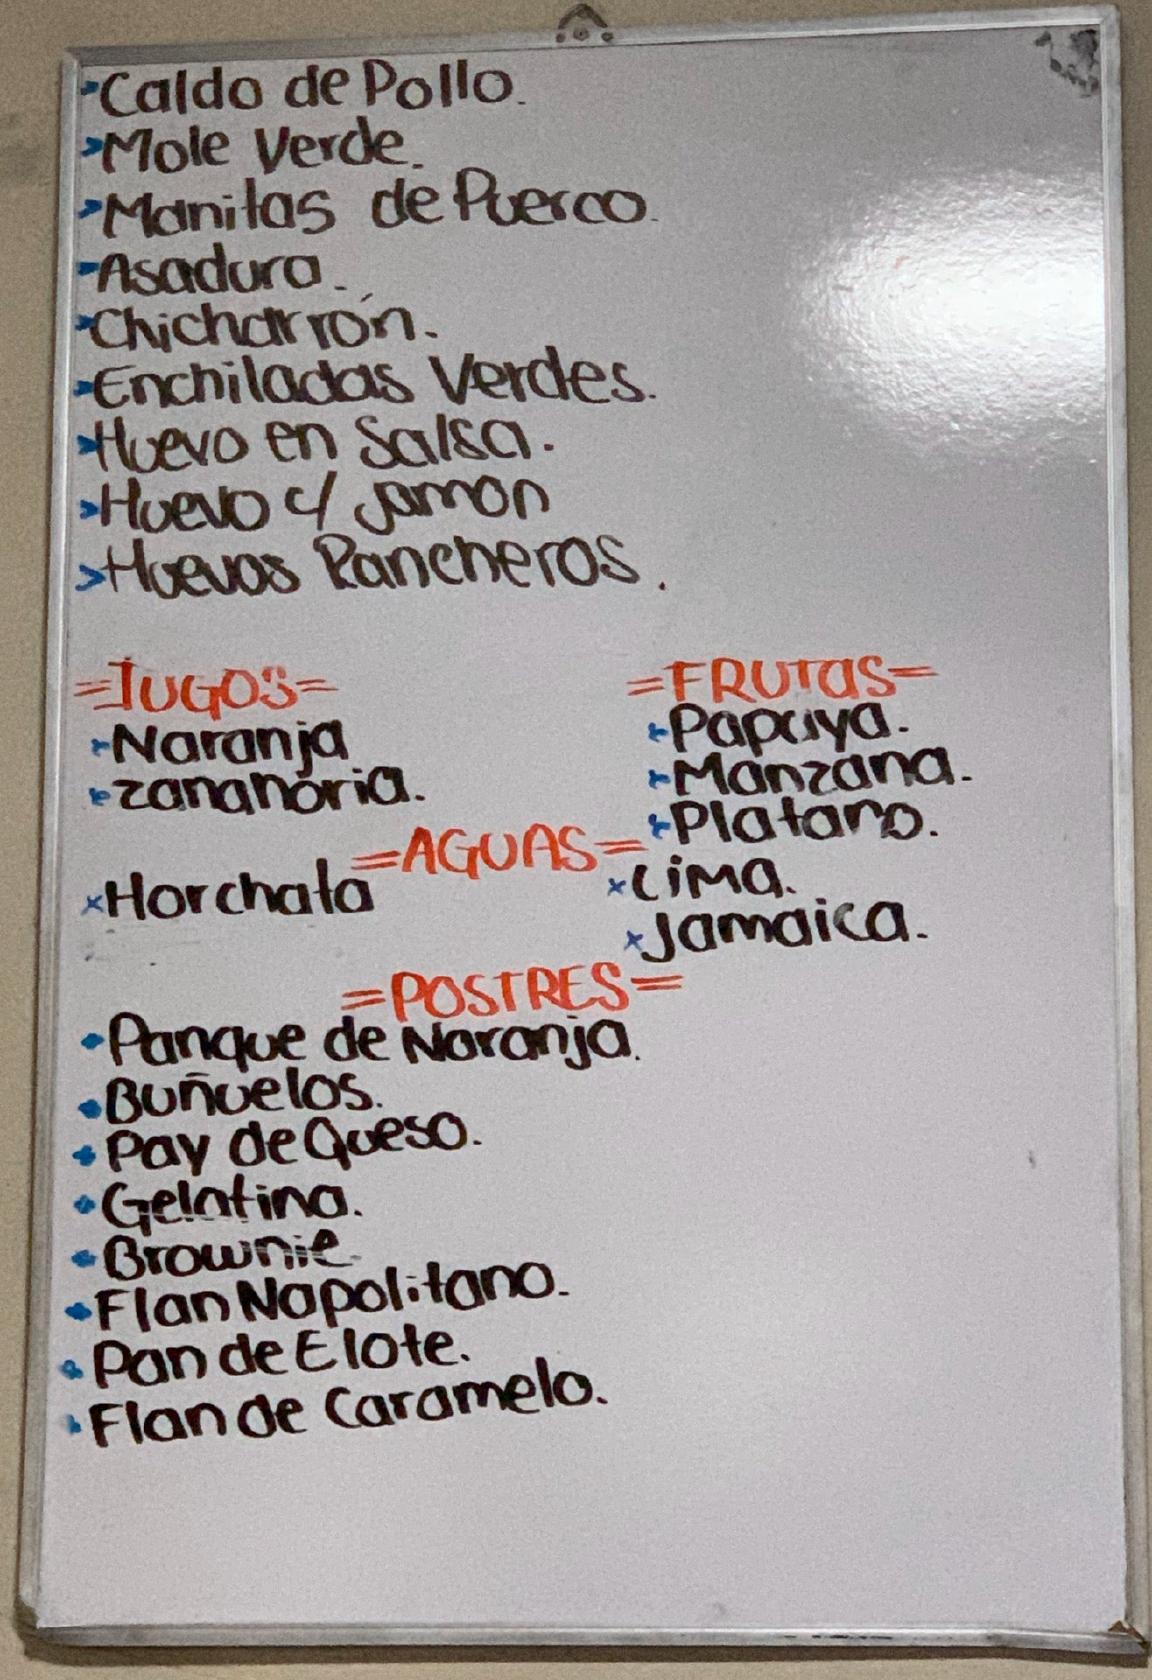 Caldo de Pollo.
Mole Verde.
Manitas de Puerco.
Asadura.
Chicharrón.
Enchiladas Verdes.
Huevo en Salsa.
Huevo c/ Jamon
Huevos Rancheros.
=JUGOS=
Naranja
zanahoria.
=FRUTAS=
Papaya.
Manzana.
Platano.
=AGUAS=
x Horchata
x Lima.
x Jamaica.
=POSTRES=
Panque de Naranja.
Buñuelos.
Pay de Queso.
Gelatina.
Brownie.
Flan Napolitano.
Pan de Elote.
Flan de Caramelo.